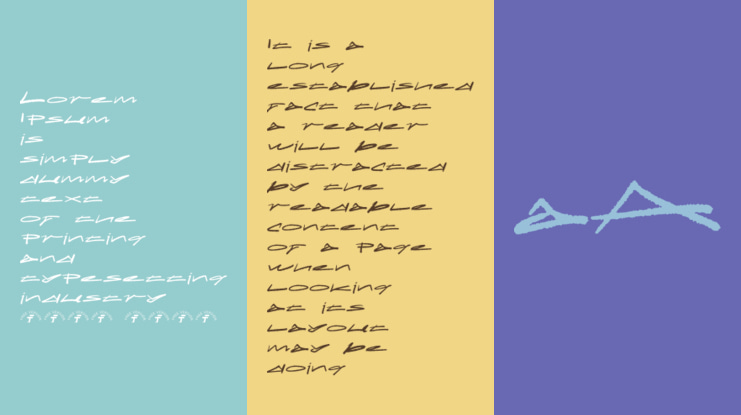 Lorem
Ipsum
is
simply
dummy
text
of the
printing
and
typesetting
industry
It is a
long
established
fact that
a reader
will be
distracted
by the
readable
content
of a page
when
looking
at its
layout
may be
doing
a A